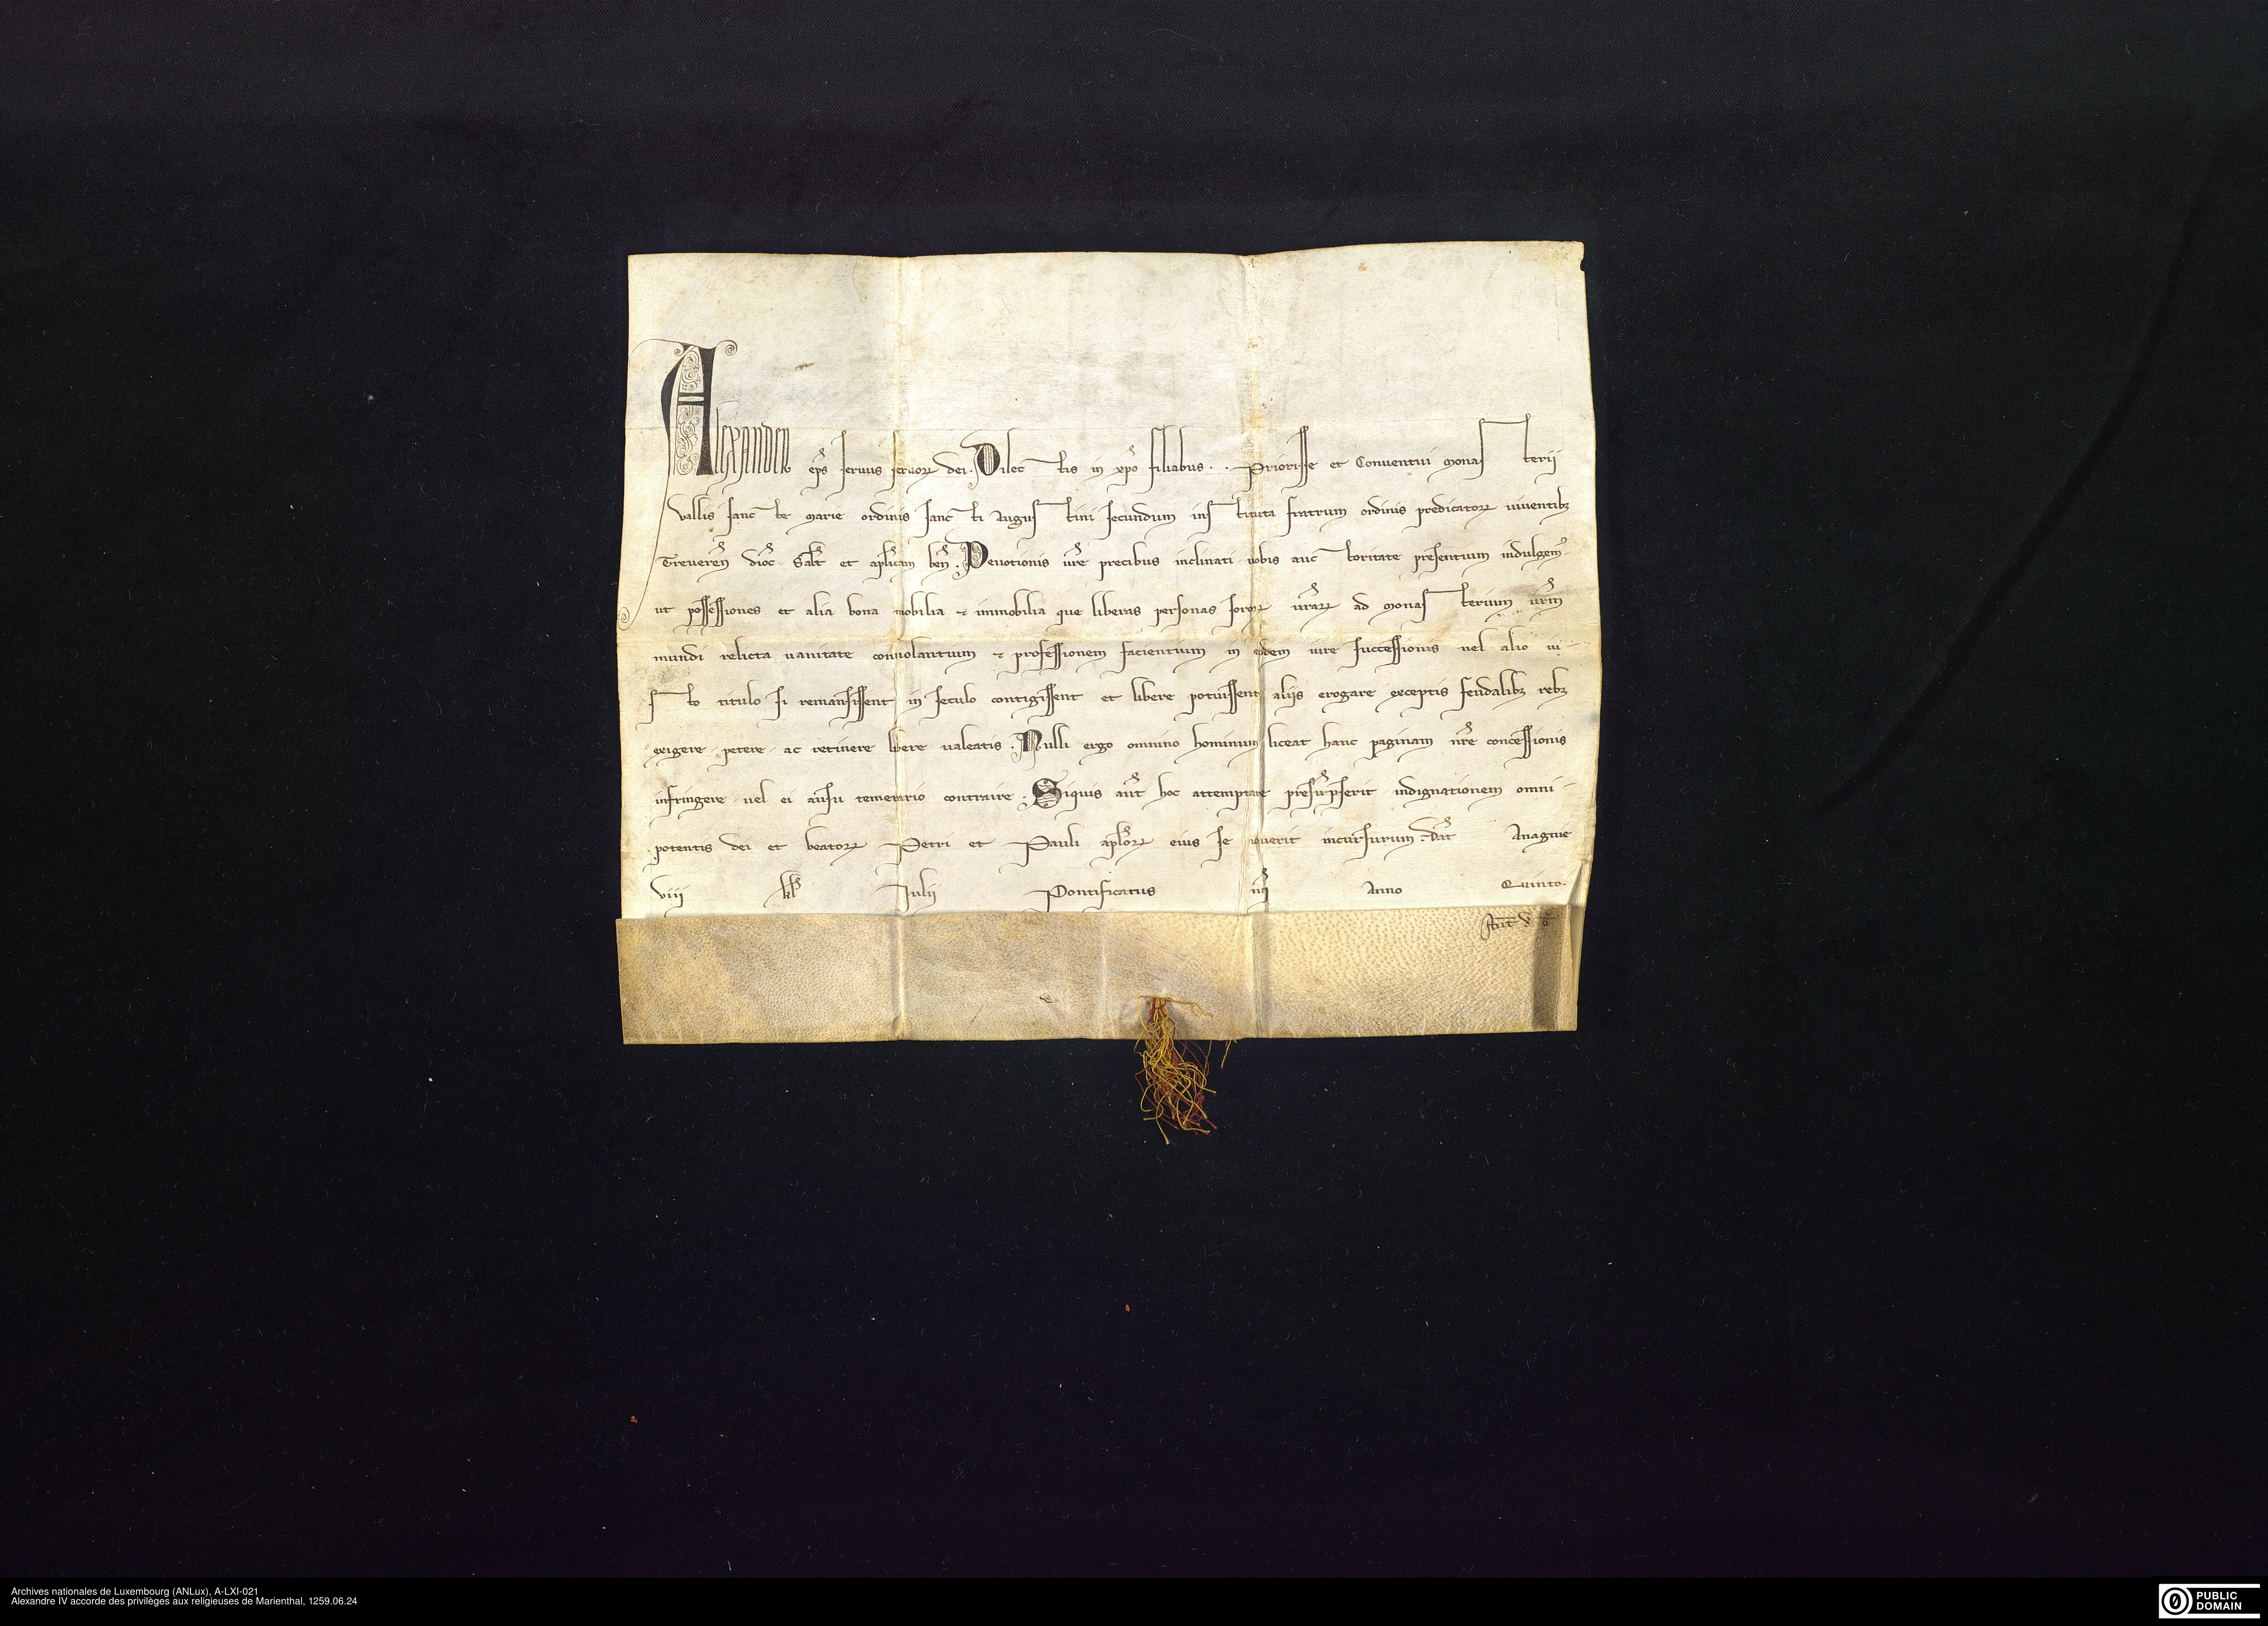 Alexander ep̄s seruus seruoꝝ dei. Dilectis in xp̄o filiabus . . Priorisse et Conuentui monasterii
vallis sancte marie ordinis sancti Augustini secundum instituta fratrum ordinis predicatoꝝ uiuentibꝫ
Treueren̄ dioc̄ Salt̄ et apl̄icam ben̄. Deuotionis ur̄e precibus inclinati uobis auctoritate presentium indulgemꝰ
ut possessiones et alia bona mobilia ⁊ immobilia que liberas personas soroꝝ ur̄aꝝ ad monasterium ur̄m
mundi relicta uanitate conuolantium ⁊ professionem facientium in eodem iure successionis uel alio iu-
sto titulo si remansissent in seculo contigissent et libere potuissent aliis erogare exceptis feudalibꝫ rebꝫ
exigere petere ac retinere libere ualeatis. Nulli ergo omnino hominum liceat hanc paginam nr̄e concessionis
infringere uel ei ausu temerario contraire. Siquis aut̄ hoc attemptare presūpserit indignationem omni-
potentis dei et beatoꝝ Petri et Pauli apl̄oꝝ eius se nouerit incursurum. Dat̄ Anagnie
viii kl̄ Iulii Pontificatus nr̄i Anno Quinto.
Archives nationales de Luxembourg (ANLux), A-LXI-021
Alexandre IV accorde des privilèges aux religieuses de Marienthal, 1259.06.24
PUBLIC
DOMAIN